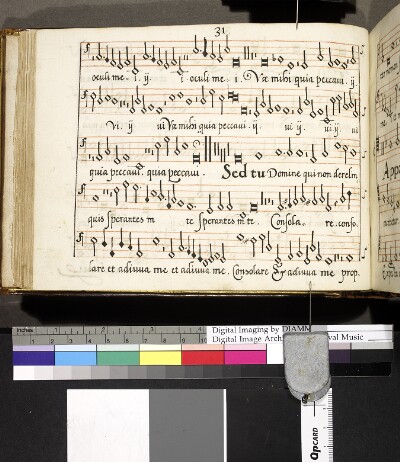 31
oculi me. i. ÿ. i oculi me. i. Væ mihi quia peccavi. ÿ.
Vi. ÿ ui Væ mihi quia peccavi. ÿ. ui ÿ. ui ÿ. ui
quia peccavi. quia peccavi. Sed tu Domine qui non derelin
quis sperantes in te sperantes in te. Consola. re. conso.
lare et adiuva me et adiuva me. Consolare & adiuva me prop.
inches
Digital Imaging by DIAMM
Digital Image Arch val Music
QPCARD